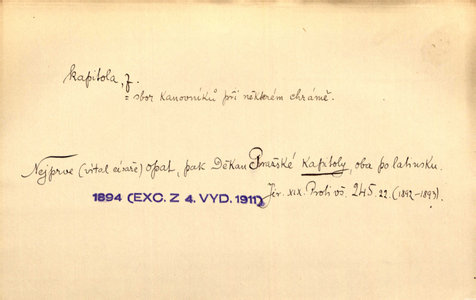 kapitola, f.
= sbor kanovníků při některém chrámě.
Nejprve (vítal císaře) opat, pak Děkan Pražské kapitoly, oba po latinsku.
1894 (EXC. Z 4. VYD. 1911) Jir. XIX. Proti vš. 245. 22. (1892–1893).